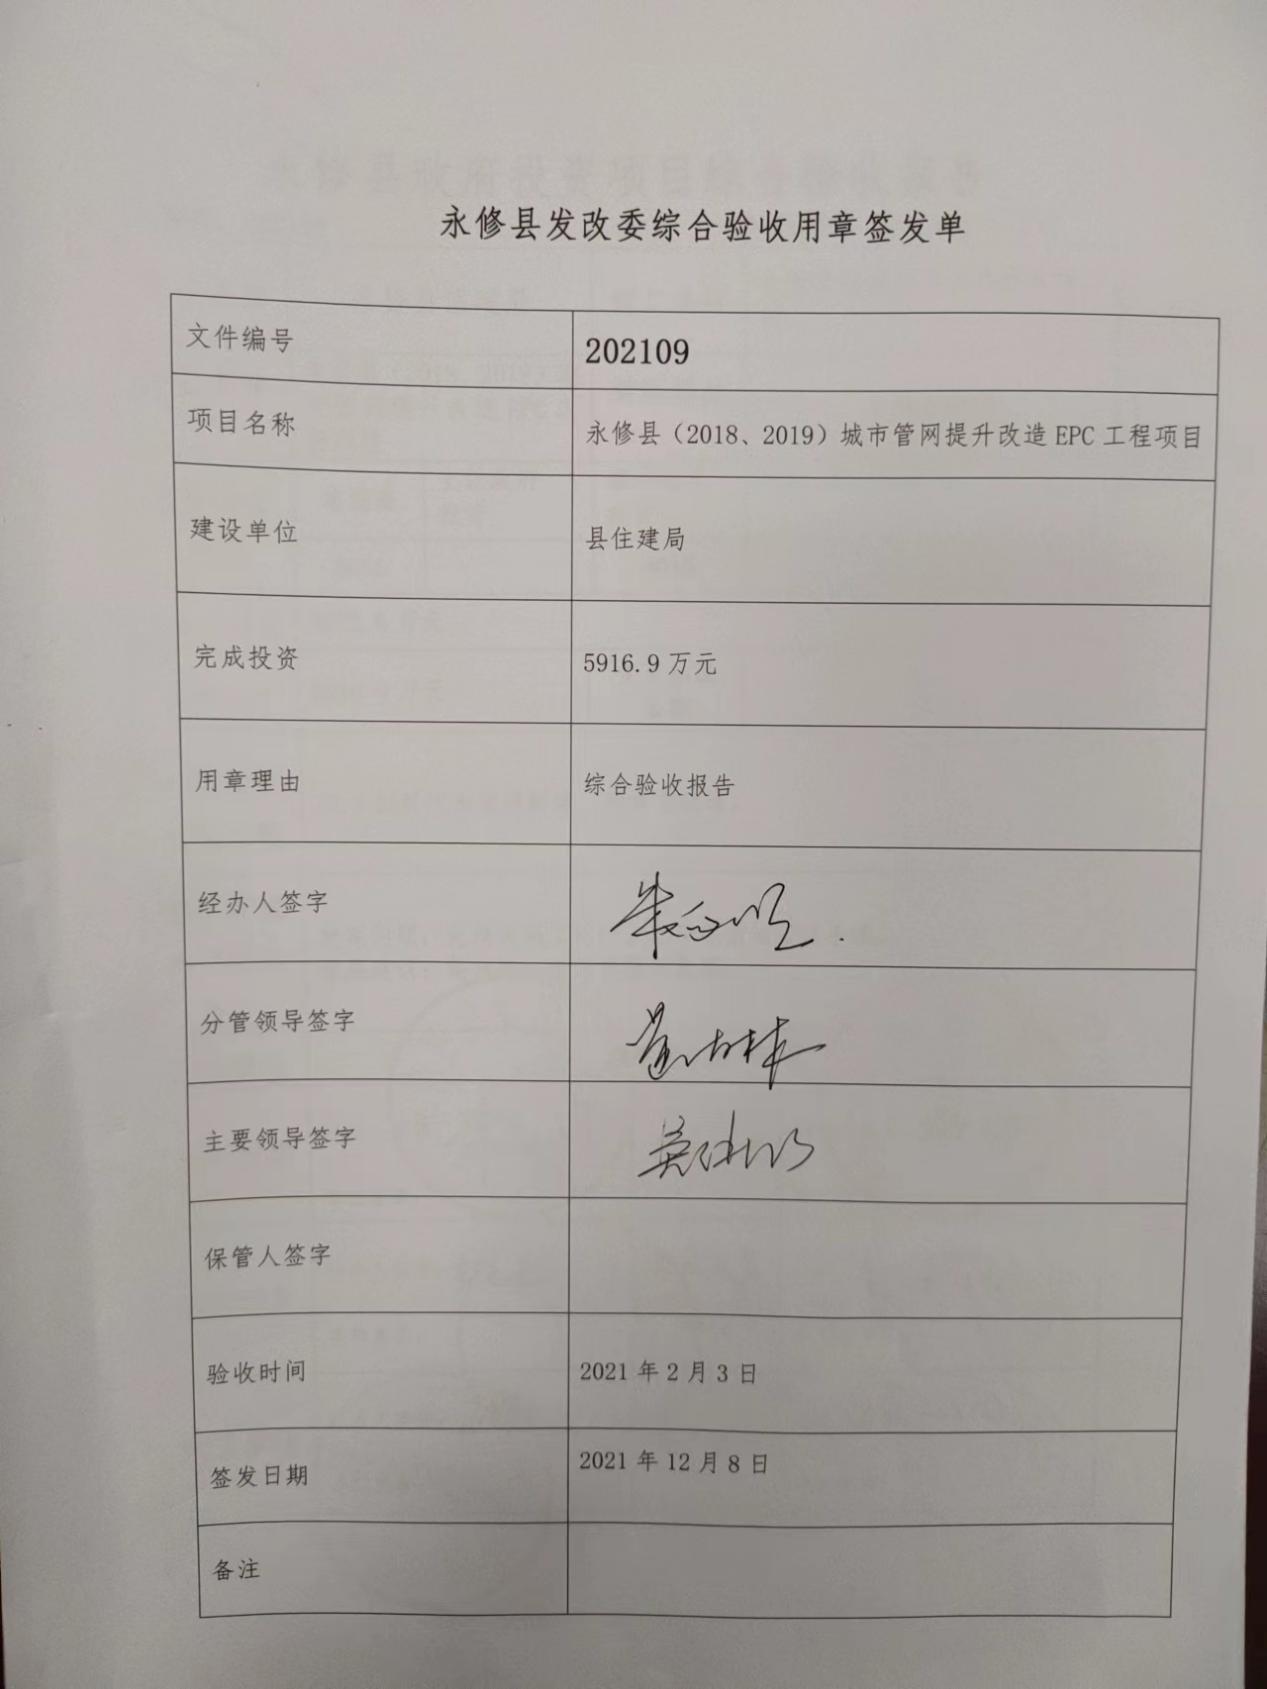 永修县发改委综合验收用章签发单
文件编号
202109
项目名称
永修县（2018、2019）城市管网提升改造 EPC 工程项目
建设单位
县住建局
完成投资
5916.9 万元
用章理由
综合验收报告
经办人签字
分管领导签字
主要领导签字
保管人签字
验收时间
2021 年 2 月 3 日
签发日期
2021 年 12 月 8 日
备注